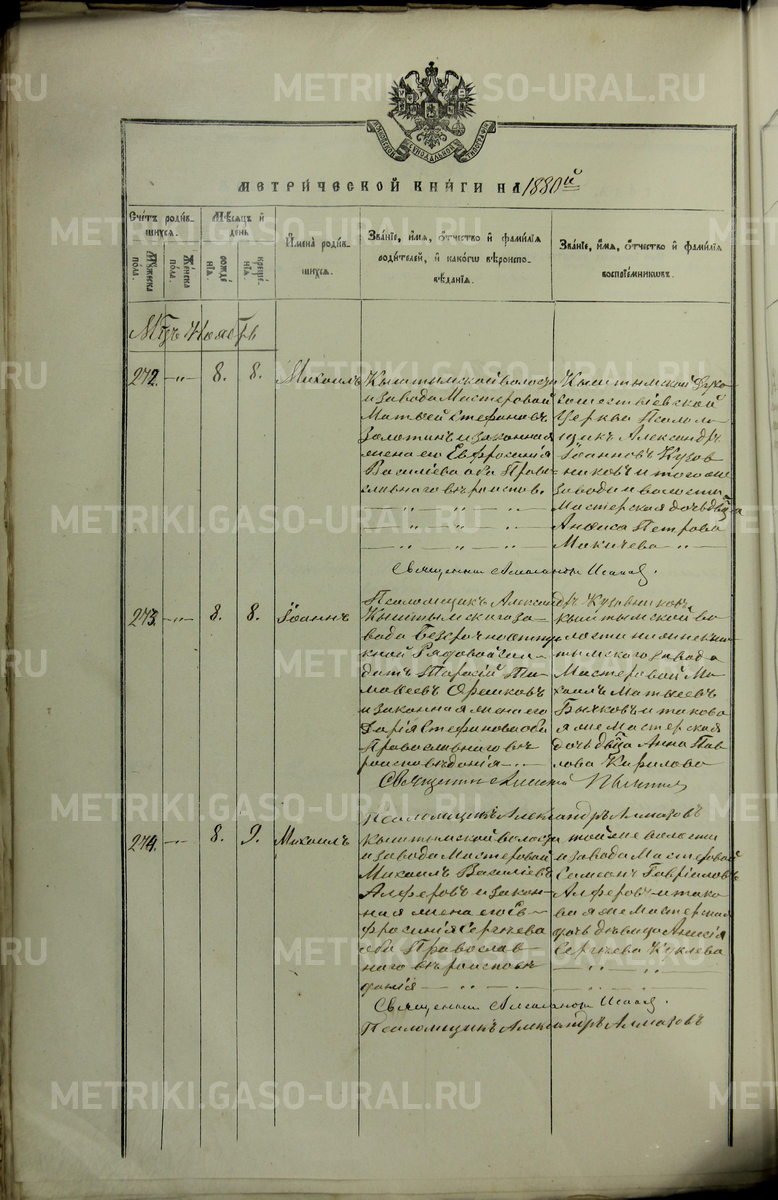 МЕТРИ́ЧЕСКОЙ КНИ́ГИ НА 1880й
Сче́тъ роди́вшихся.
Му́жеска по́ла.
Же́нска по́ла.
Мѣ́сяцъ и́ день
рожде́нїя.
креще́нїя.
И҆мена̀ роди́вшихся.
Зва́нїе, и҆́мя, ѻ҆́тчество и҆ фами́лїя роди́телей, и҆ како́гѡ вѣроисповѣ́данїя.
Зва́нїе, и҆́мя, ѻ҆́тчество и҆ фами́лїя воспрїе́мникѡвъ.
Мцъ Ноябрь
272. 8. 8. Михаилъ
Кыштымской волости
и завода Мастеровой
Матѳей Стефановъ
Золотинъ и законная
жена его Евфросинія
Василіева оба Право-
славнаго вѣроиспов.
Кыштымской Духо
сошествіевской
Церкви Псаломщикъ Александръ
Іоанновъ Кузовниковъ и того же
завода и волости
Мастерская дочь дѣвица
Анѳиса Петрова
Священникъ
Псаломщикъ Александръ Кузовниковъ
273. 8. 8. Іоаннъ
Кыштымскаго за-
вода Безсрочноотпускной Рядовой Сол-
датъ Тарасій Ти-
моѳеевъ Орѣшковъ
и законная жена его
Дарія Стефанова оба
Православнаго вѣ-
роисповѣданія
Кыштымской во
лости нижнекыш-
тымскаго завода
Мастеровой Ми-
хаилъ Матѳеевъ
Бычковъ и такова
я же Мастерская
дочь дѣвица Анна Пав
лова Кирилова
Священникъ
Псаломщикъ Александръ Алмазовъ
274. 8. 9. Михаилъ
Кыштымской волости
и завода Мастеровой
Михаилъ Василіевъ
Алферовъ и закон-
ная жена его Ев-
фросинія Сергѣева
оба Православ-
наго вѣроисповѣ
данія
той же волости
и завода Мастеровой
Симеонъ Гавріиловъ
Алферовъ и тако-
вая же Мастерская
дочь дѣвица
Сергѣева Куклева
Священникъ
Псаломщикъ Александръ Алмазовъ
METRIKI.GASO-URAL.RU